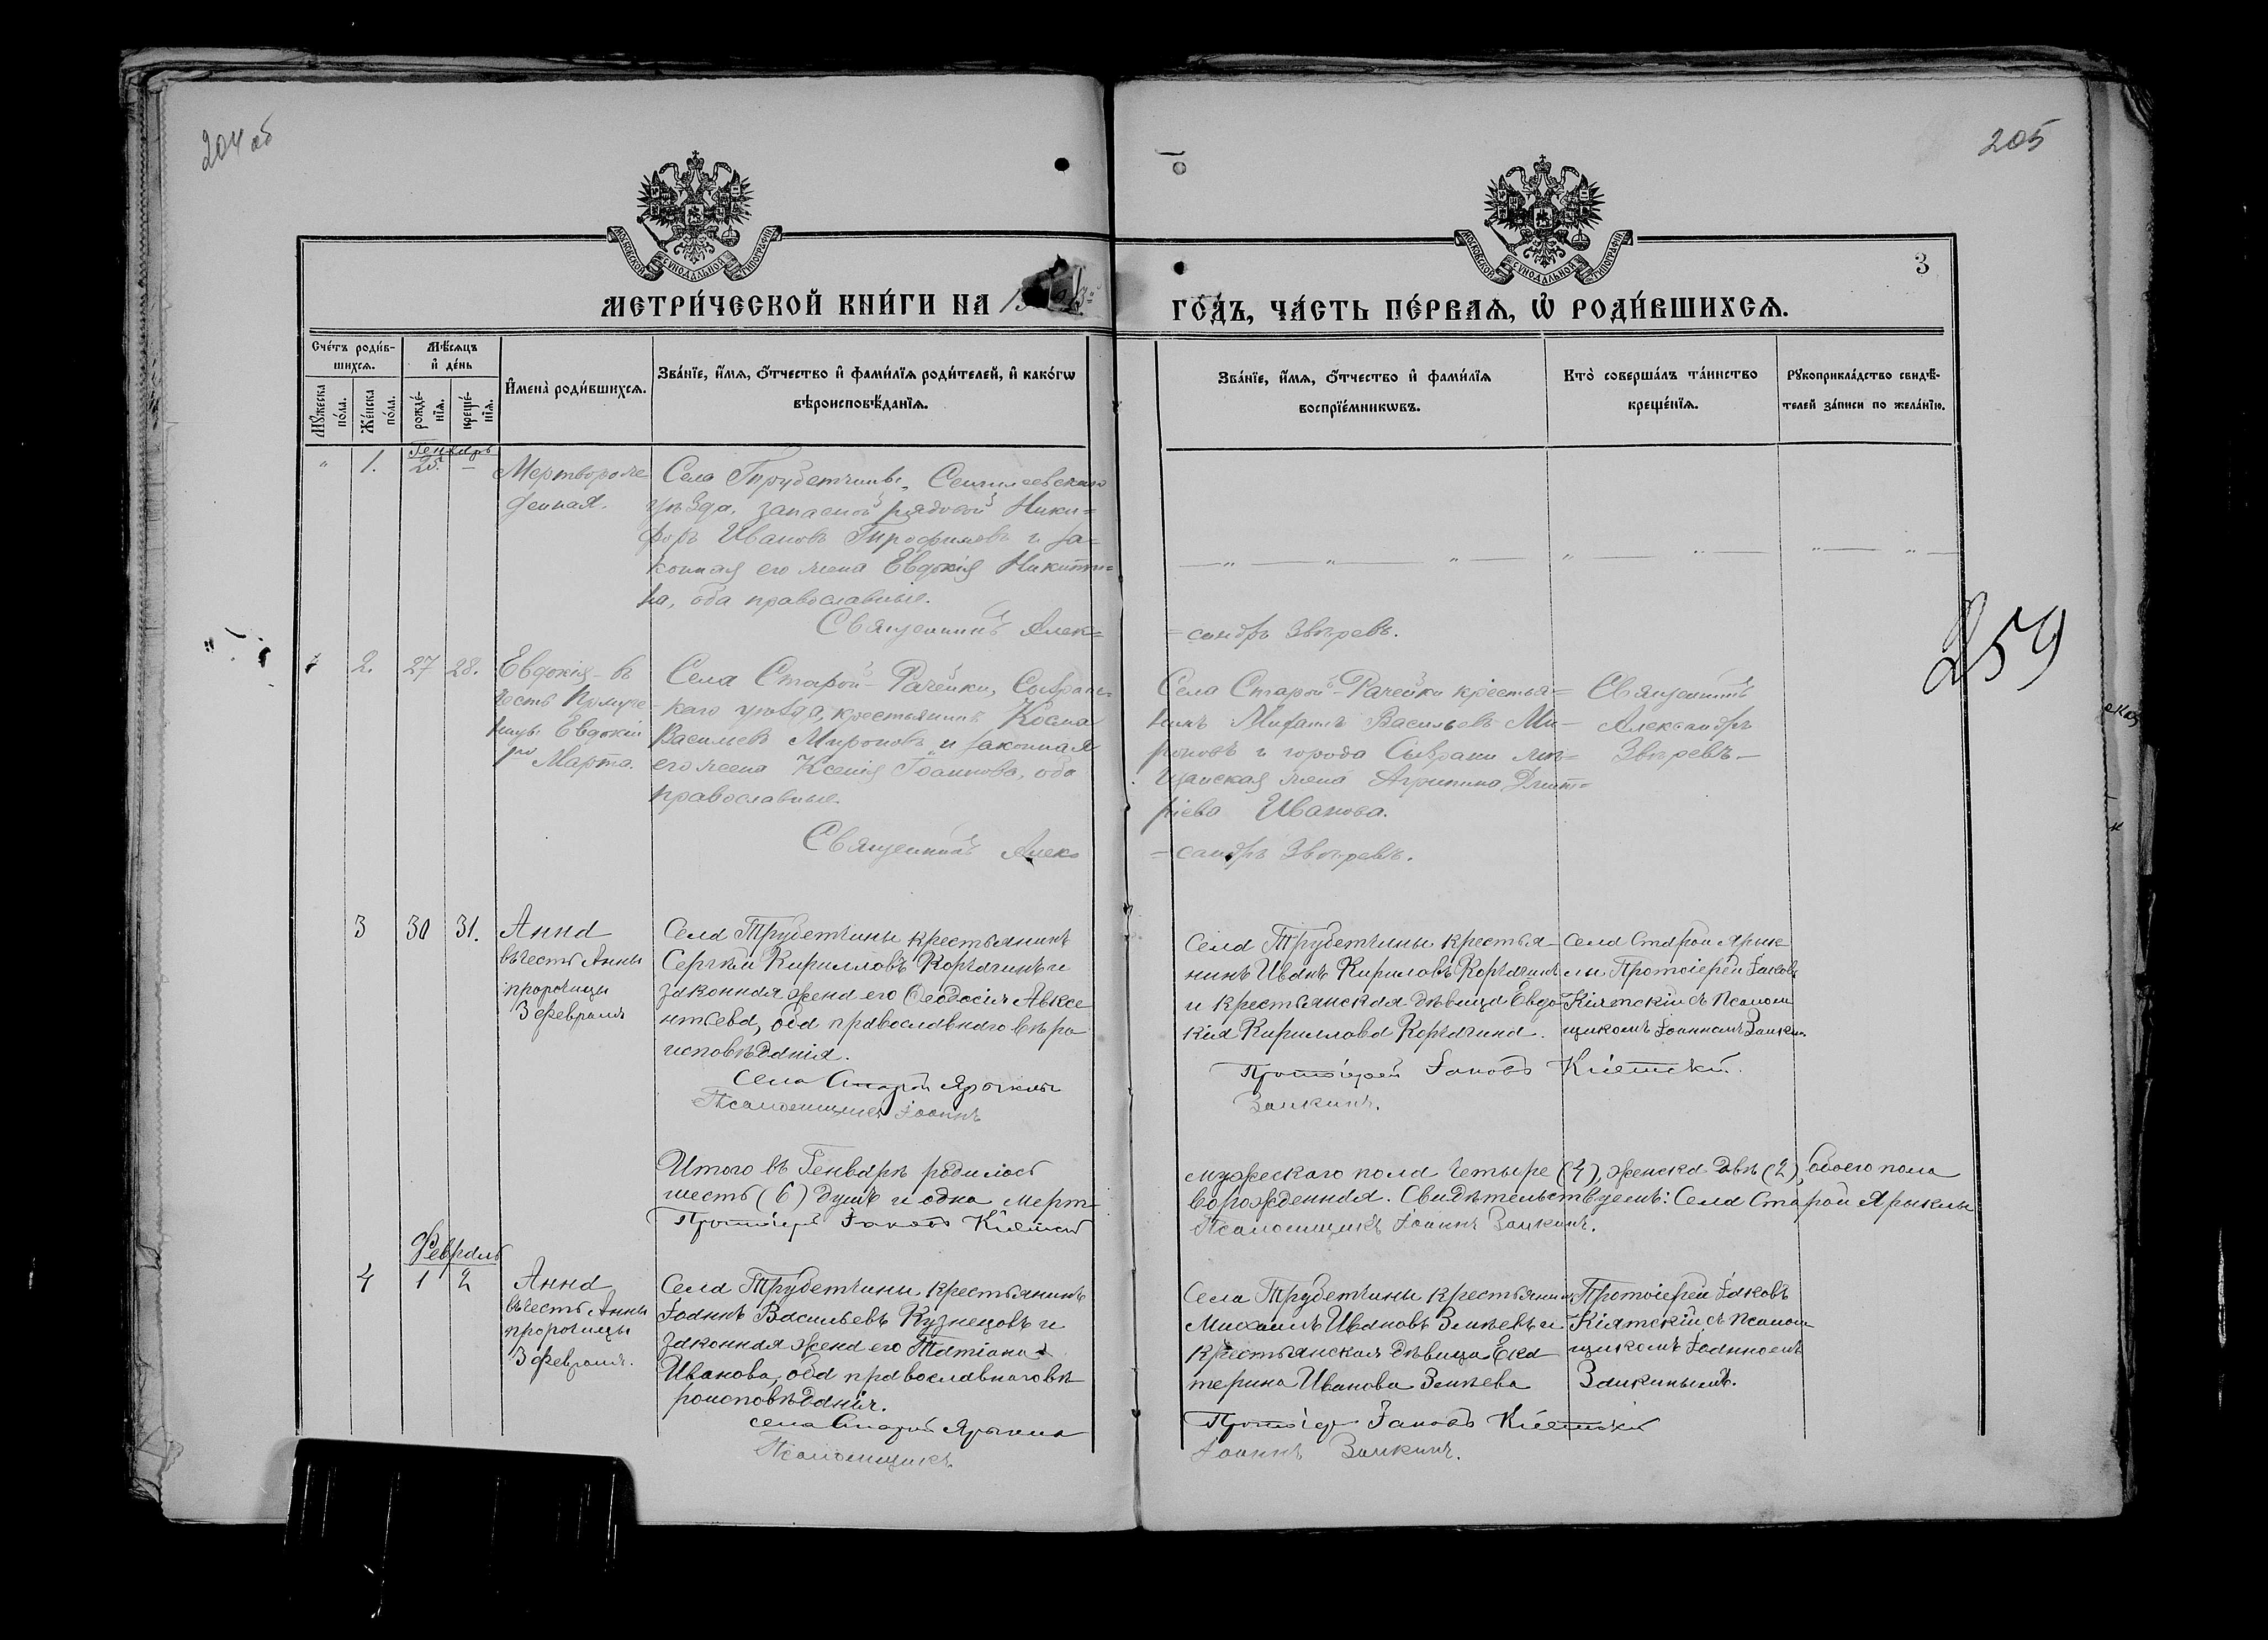 204 об
205
МОСКОВСКОЙ СѴНОДАЛЬНОЙ ТИПОГРАФІИ
МОСКОВСКОЙ СѴНОДАЛЬНОЙ ТИПОГРАФІИ
3
МЕТРИ́ЧЕСКОЙ КНИ́ГИ НА
ГО́ДЪ, ЧА́СТЬ ПЕ́РВАѦ, Ѿ РОДИ́ВШИХСѦ.
Сче́тъ роди́в-
шихсѧ.
Мѣ́сѧцъ
и҆ де́нь
Мꙋ́жеска по́ла.
Же́нска по́ла.
рожде́-
нїѧ.
креще́-
нїѧ.
И҆мена̀ роди́вшихсѧ.
Зва́нїе, и҆́мѧ, ѻ҆́тчество и҆ фами́лїѧ роди́телей, и҆ како́гѡ
вѣроисповѣ́данїѧ.
Зва́нїе, и҆́мѧ, ѻ҆́тчество и҆ фами́лїѧ
воспрїе́мникѡвъ.
Кто̀ соверша́лъ та́инство
креще́нїѧ.
Рꙋкоприкла́дство свидѣ́-
телей за́писи по жела́нїю.
Генварь
" 1. 25. —
Мертворож
денная.
Села Трубетчины, Сенгилеевскаго
уѣзда, запасной рядовой Ники=
форъ Ивановъ Трофимовъ и за=
конная его жена Евдокія Никити=
на, оба православные.
Священникъ Алек=
=сандръ Звѣревъ.
259
2. 27 28.
Евдокія – въ
честь Прмуче
ницы Евдокіи
1го Марта.
Села Старой-Рачейки, Сызран-
скаго уѣзда, крестьянинъ Косма
Васильевъ Мироновъ и законная
его жена Ксенія Іоаннова, оба
православные.
Священникъ Алек=
Села Старой-Рачейки крестья=
нинъ Михаилъ Васильевъ Ми-
роновъ и города Сызрани мѣ=
щанская жена Агрипина Дмит=
ріева Иванова.
=сандръ Звѣревъ.
Священникъ
Александръ
Звѣревъ –
3 30 31.
Анна
въ честь Анны
пророчицы
3 февраля
Села Трубетчины крестьянинъ
Сергѣй Кирилловъ Корчагинъ и
законная жена его Ѳеодосія Авксе
нтьева, оба православнаго вѣро
исповѣданія.
Села Старой Ярыклы
Псаломщикъ Іоаннъ
Села Трубетчины крестья-
нинъ Иванъ Кириловъ Корчагинъ
и крестьянская дѣвица Евдо
кія Кириллова Корчагина.
Протоіерей Іаковъ Кіятскій.
Заикинъ.
Села Старой Ярык
лы Протоіерей Іаковъ
Кіятскій съ Псалом
щикомъ Іоанномъ Заики.
Итого въ Генварѣ родилось
шесть (6) душъ и одна мерт-
Протоіерей Іаковъ Кіятскій
мужескаго пола четыре (4), женска двѣ (2), обоего пола
ворожденная. Свидѣтельствуемъ: Села Старой Ярыклы
Псаломщикъ Іоаннъ Заикинъ.
Февраль
4 1 2
Анна
въ честь Анны
пророчицы
3 февраля.
Села Трубетчины крестьянинъ
Іоаннъ Васильевъ Кузнецовъ и
законная жена его Татіана
Иванова, оба православнаго вѣ
роисповѣданія.
села Старой Ярыклы
Псаломщикъ
Села Трубетчины крестьянинъ
Михаилъ Ивановъ Змѣевъ и
крестьянская дѣвица Ека
терина Иванова Змѣева
Протоіерей Іаковъ Кіятскій
Іоаннъ Заикинъ.
Протоіерей Іаковъ
Кіятскій съ Псалом-
щикомъ Іоанномъ
Заикинымъ.